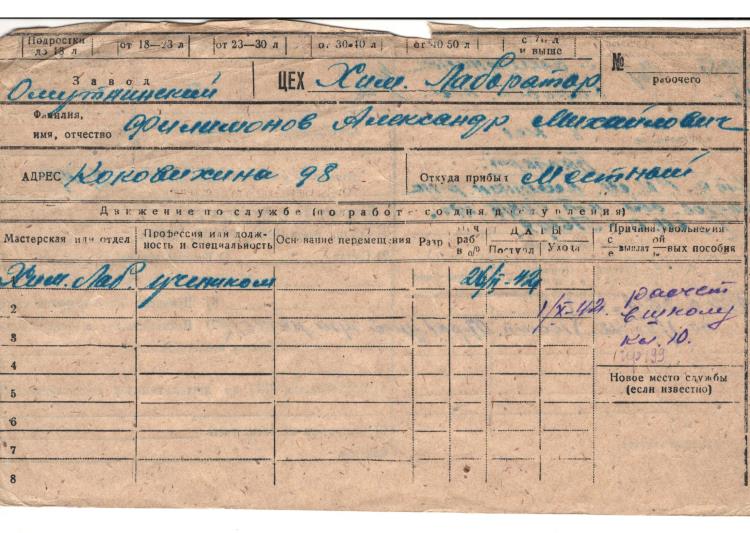 Подростки до 18 л
от 18—23 л
от 23—30 л
от 30-40 л
от 40 50 л
и выше
Завод
Омутнинский
ЦЕХ Хим. Лаборатор.
№
рабочего
Фамилия,
имя, отчество Филимонов Александр Михайлович
АДРЕС Коковихина 98
Откуда прибыл Местный
Движение по службе (по работе со дня поступления)
Мастерская или отдел
Профессия или должность и специальность
Основание перемещения
Разр
раб
в о/о
ДАТЫ
Поступл
Ухода
Причина увольнения
с выплат вых пособия
Хим. Лаб. учеником 42
1/IX-42. расчет
2 в школу
3 кл. 10.
4
Новое место службы
(если известно)
5
6
7
8